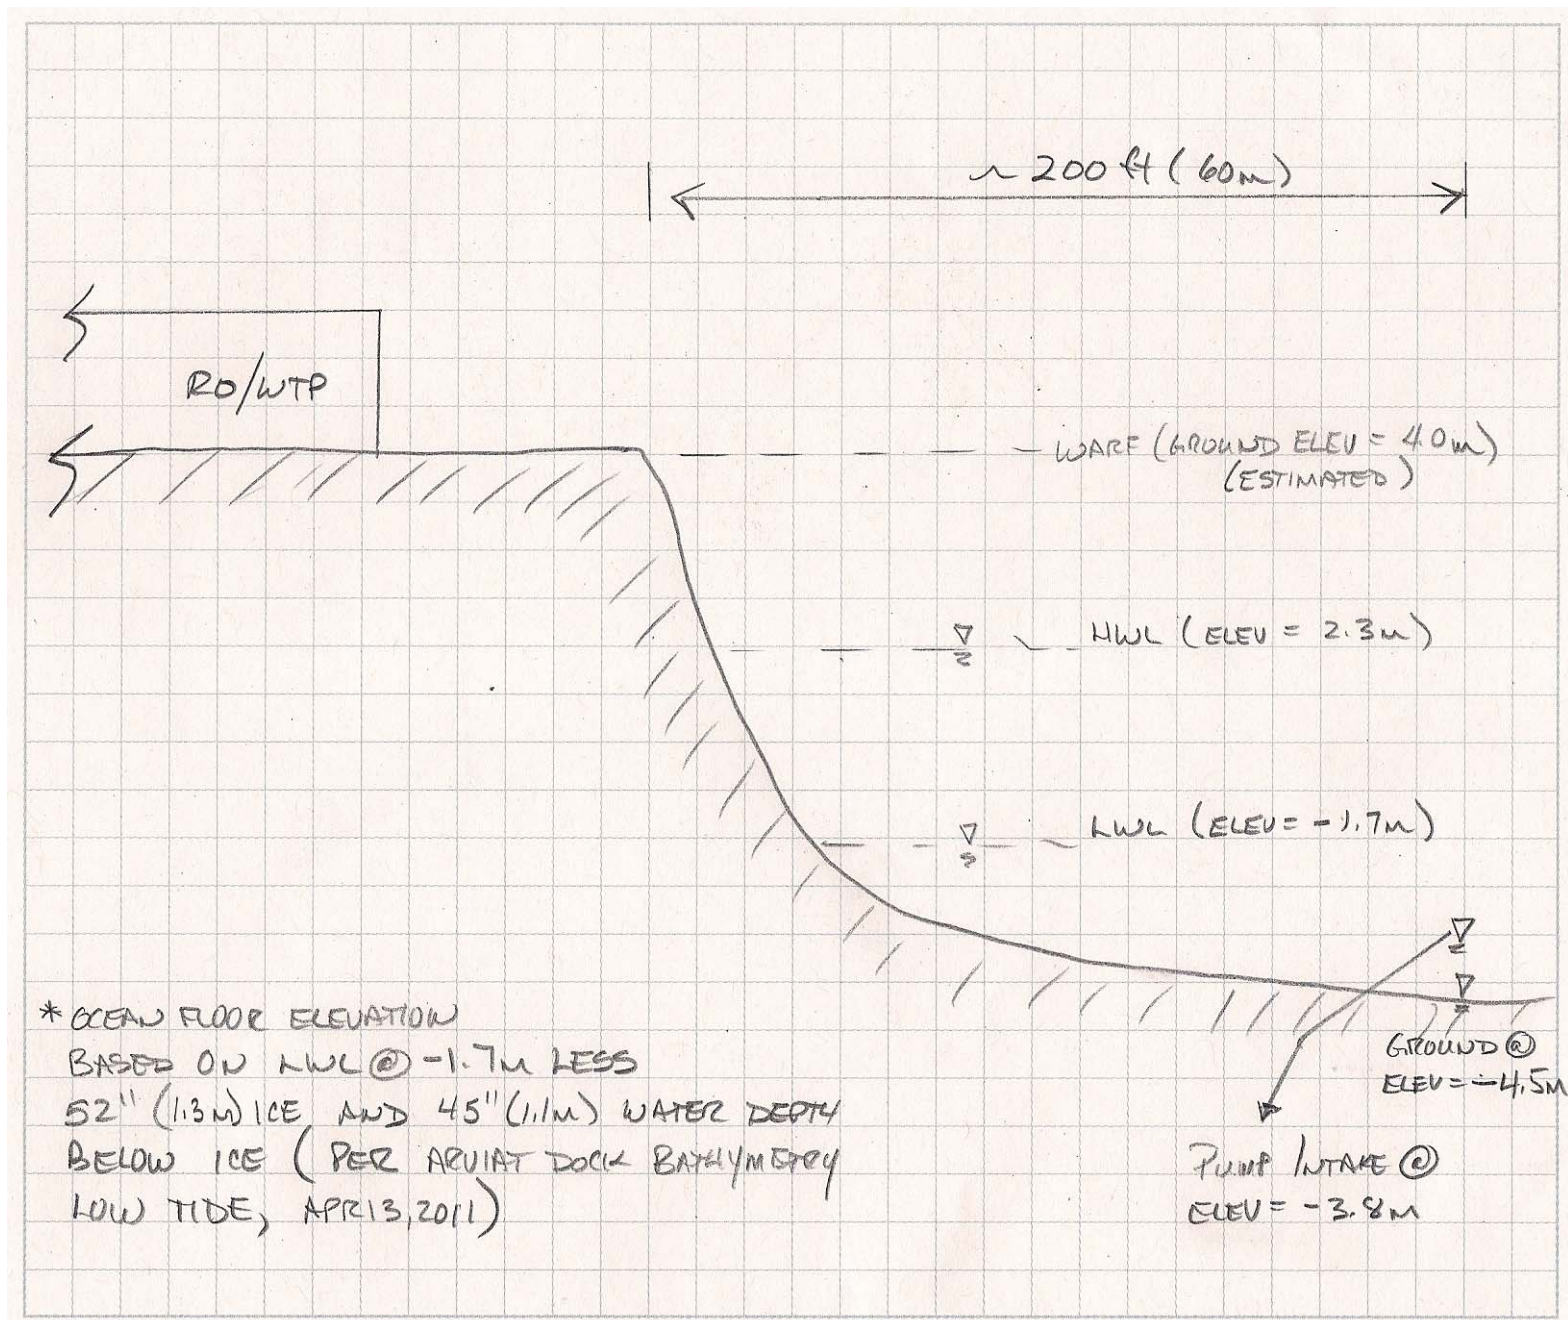 ~ 200 ft (60m)
RO/WTP
WARF (GROUND ELEV = 4.0m)
(ESTIMATED)
HWL (ELEV = 2.3m)
LWL (ELEV = -1.7m)
GROUND @
ELEV = -4.5M
PUMP INTAKE @
ELEV = -3.8M
* OCEAN FLOOR ELEVATION
BASED ON LWL @ -1.7M LESS
52" (1.3M) ICE AND 45" (1.1M) WATER DEPTH
BELOW ICE (PER ARVIAT DOCK BATHYMETRY
LOW TIDE, APR13,2011)